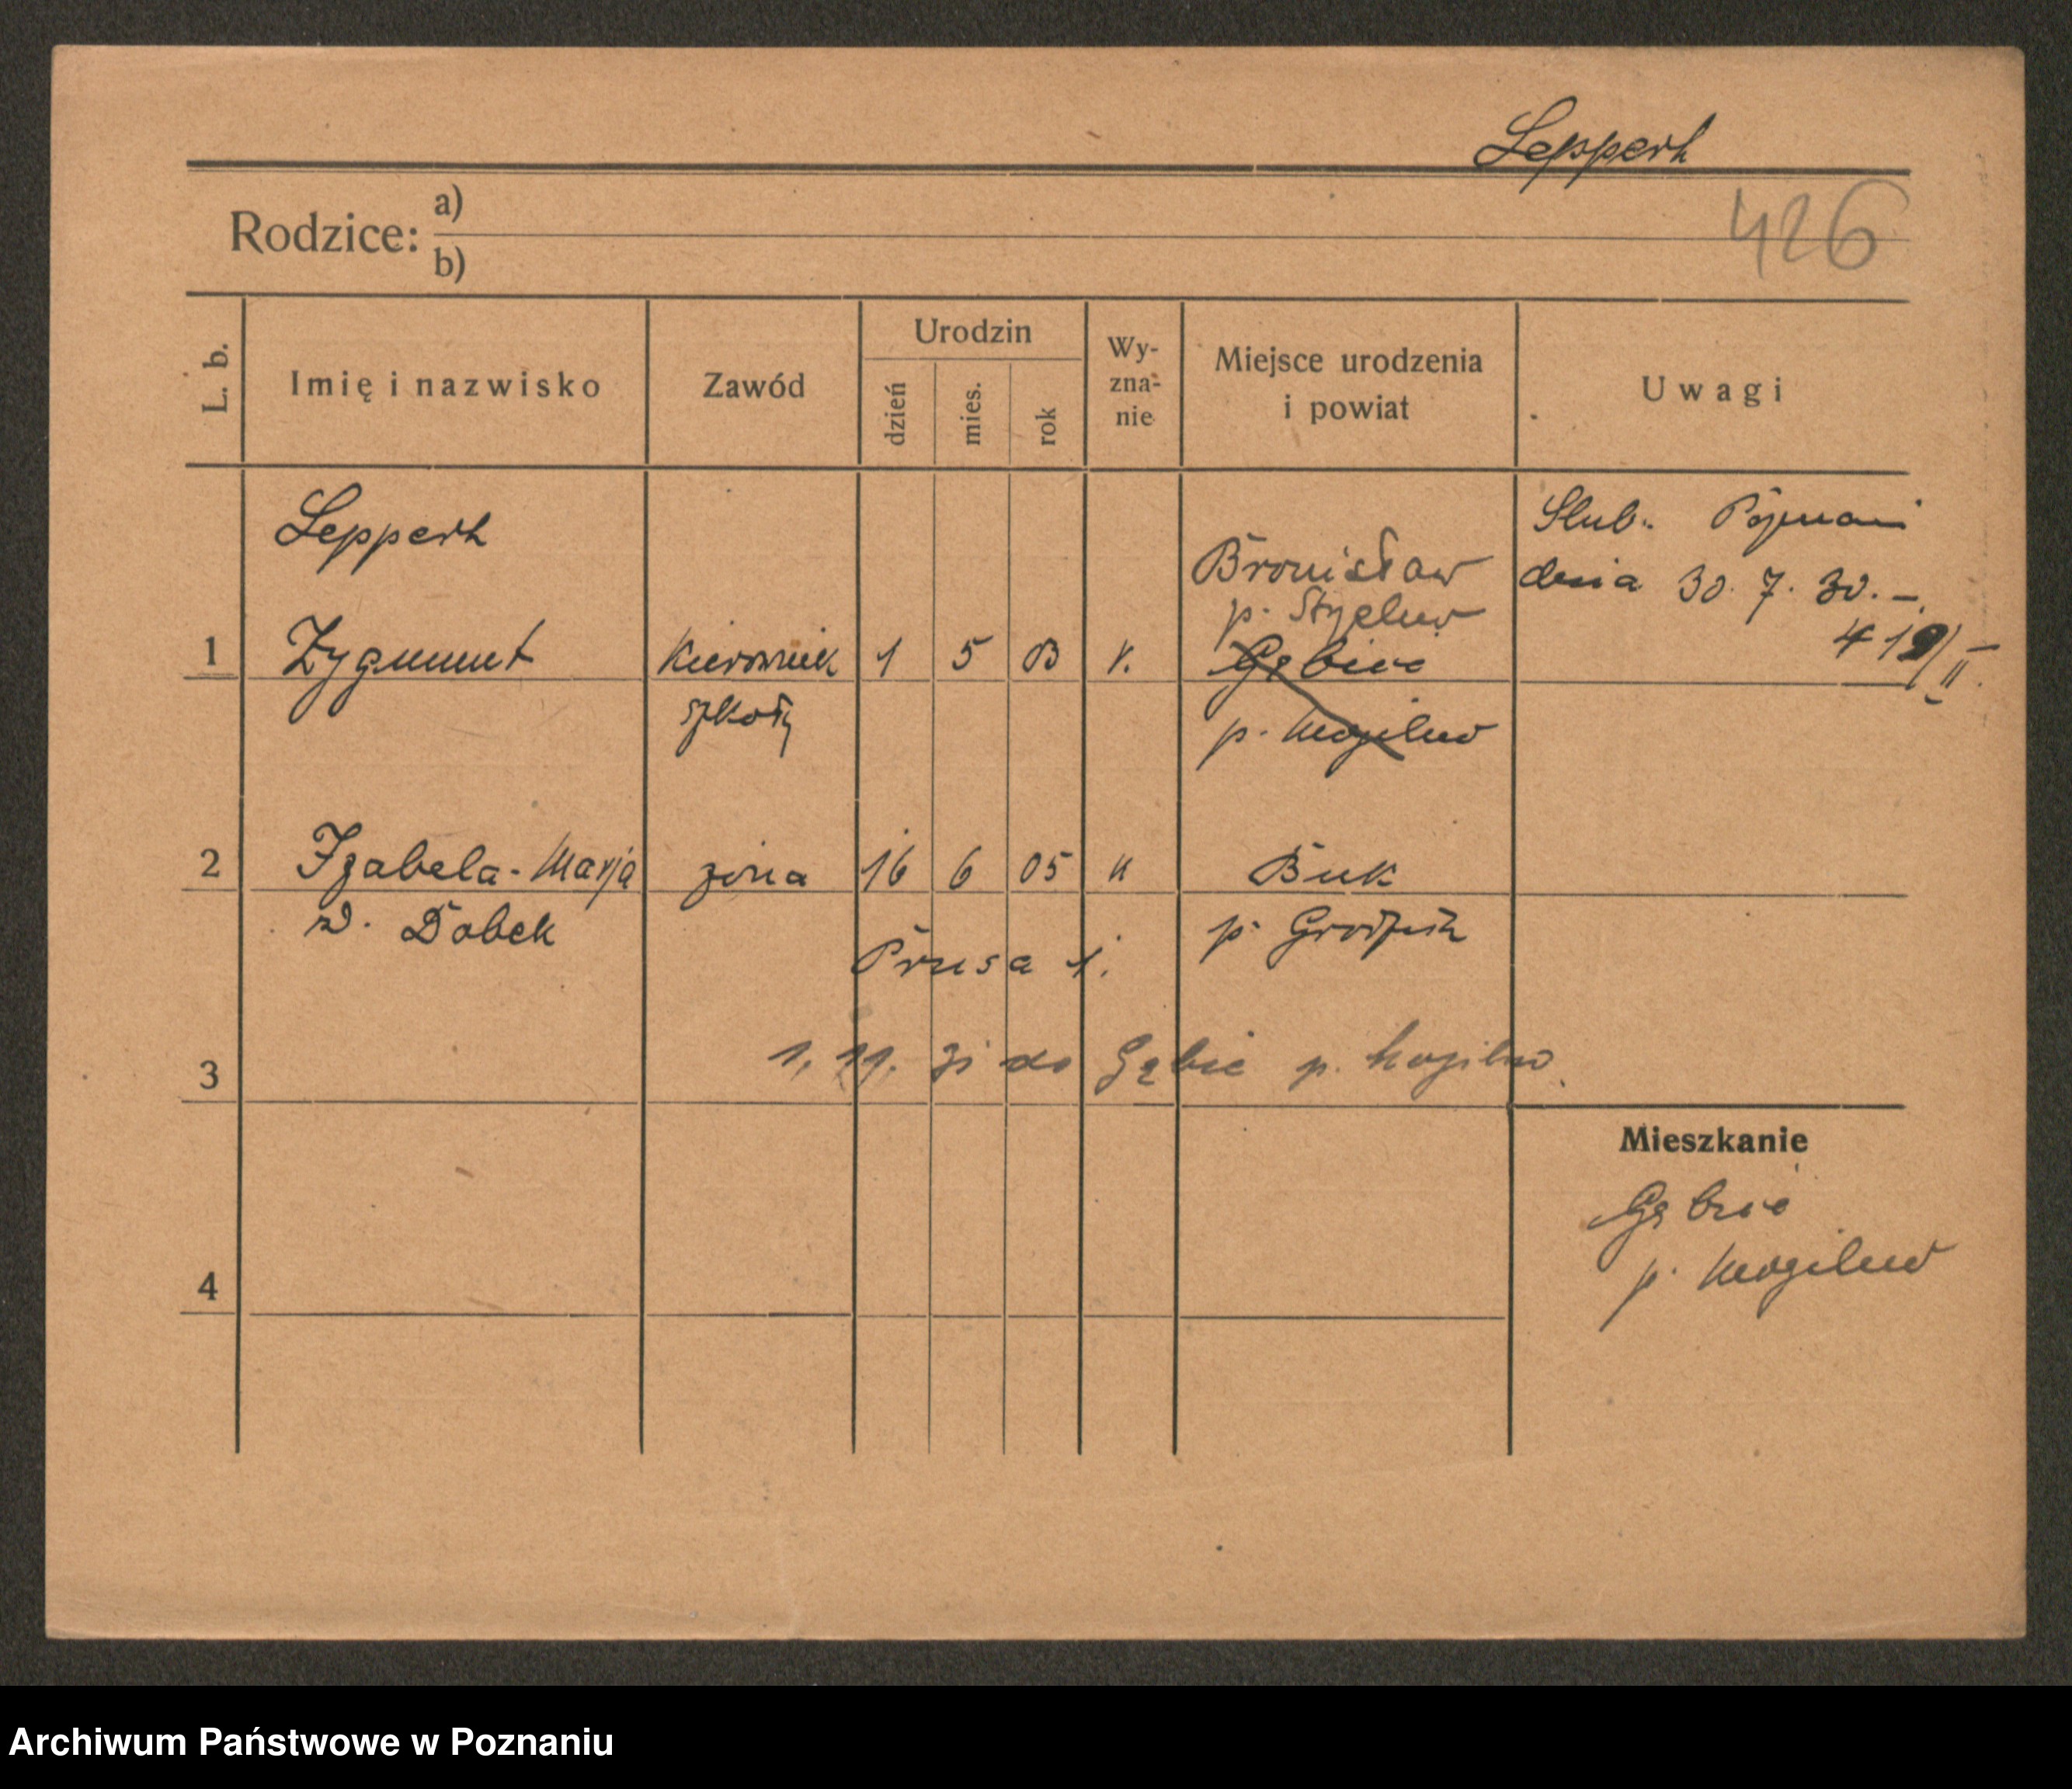 Leppert
426
Rodzice: a)
b)
L. b.
Imię i nazwisko
Zawód
Urodzin
dzień
mies.
rok
Wy-
zna-
nie
Miejsce urodzenia
i powiat
Uwagi
Leppert
1 Zygmunt
kierownik
szkoły
1 5 03 k.
Bronisław
p. Strzelno
Gębice
p. Mogilno
Slub: Poznań
dnia 30. 7. 30. –
419/II.
2 Izabela-Marja
z d. Dobek
żona
16 6 05 k
Buk
p. Grodzisk
Prusa 1.
3
1. 11. 31 do Gębic p. Mogilno.
Mieszkanie
Gębice
p. Mogilno
4
Archiwum Państwowe w Poznaniu